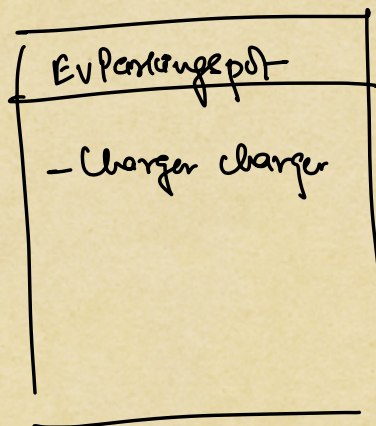 EvParkingspot
- Charger charger